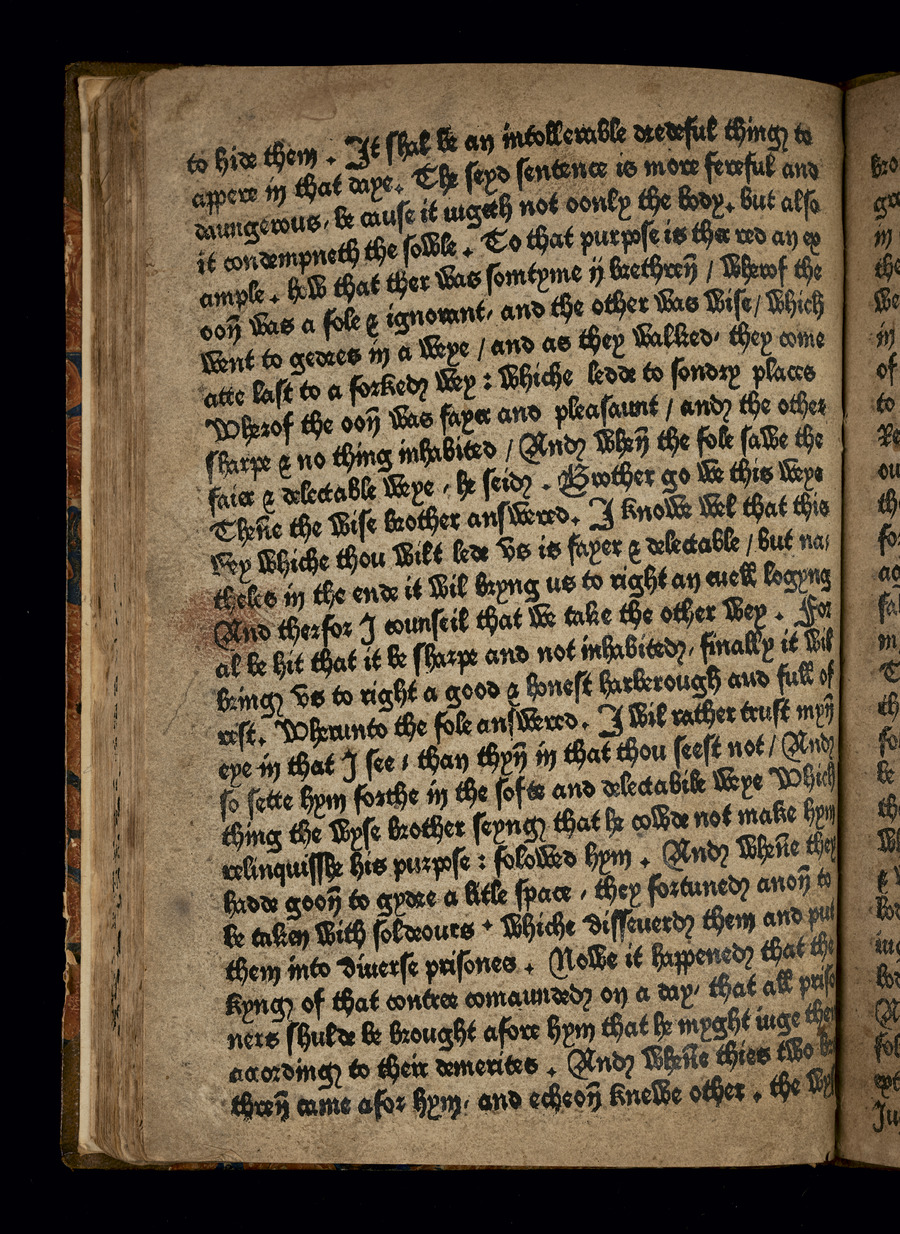 to hide them . It shal be an intollerable dredeful thing to
appere in that daye. The seyd sentence is more fereful and
daungerous, be cause it iugeth not oonly the body. but also
it condempneth the sowle . To that purpose is ther red an ex
ample . how that ther was somtyme ij brethren̄ / wherof the
oon̄ was a fole & ignorant, and the other was wise / which
went to gedres in a weye / and as they walked, they come
atte last to a forked wey : whiche ledde to sondry places
Wherof the oon̄ was fayer and pleasaunt / and the other
sharpe & no thing inhabited / And when̄ the fole sawe the
faier & delectable weye , he seid . Brother go we this weye
Then̄e the wise brother answered. I knowe wel that this
wey whiche thou wilt lede vs is fayer & delectable / but na/
theles in the ende it wil bryng us to right an euell logyng
And therfor I counseil that we take the other wey . For
al be hit that it be sharpe and not inhabited, finally it wil
bring vs to right a good & honest harberough and full of
rest. Wherunto the fole answered. I wil rather trust myn̄
eye in that I see , than thyn̄ in that thou seest not / And
so sette hym forthe in the softe and delectabile weye Which
thing the wyse brother seyng that he cowde not make hym
relinquisshe his purpose : folowed hym . And when̄e they
hadde goon̄ to gydre a litle space , they fortuned anon̄ to
be taken with soldeours . whiche disseuerd them and put
them into diuerse prisones . Nowe it happened that the
kyng of that contree comaunded on a day, that all priso
ners shulde be brought afore hym that he myght iuge them
acording to their demerites . And when̄e thies two bre
thren̄ came afor hym, and echeon̄ knewe other . the wys